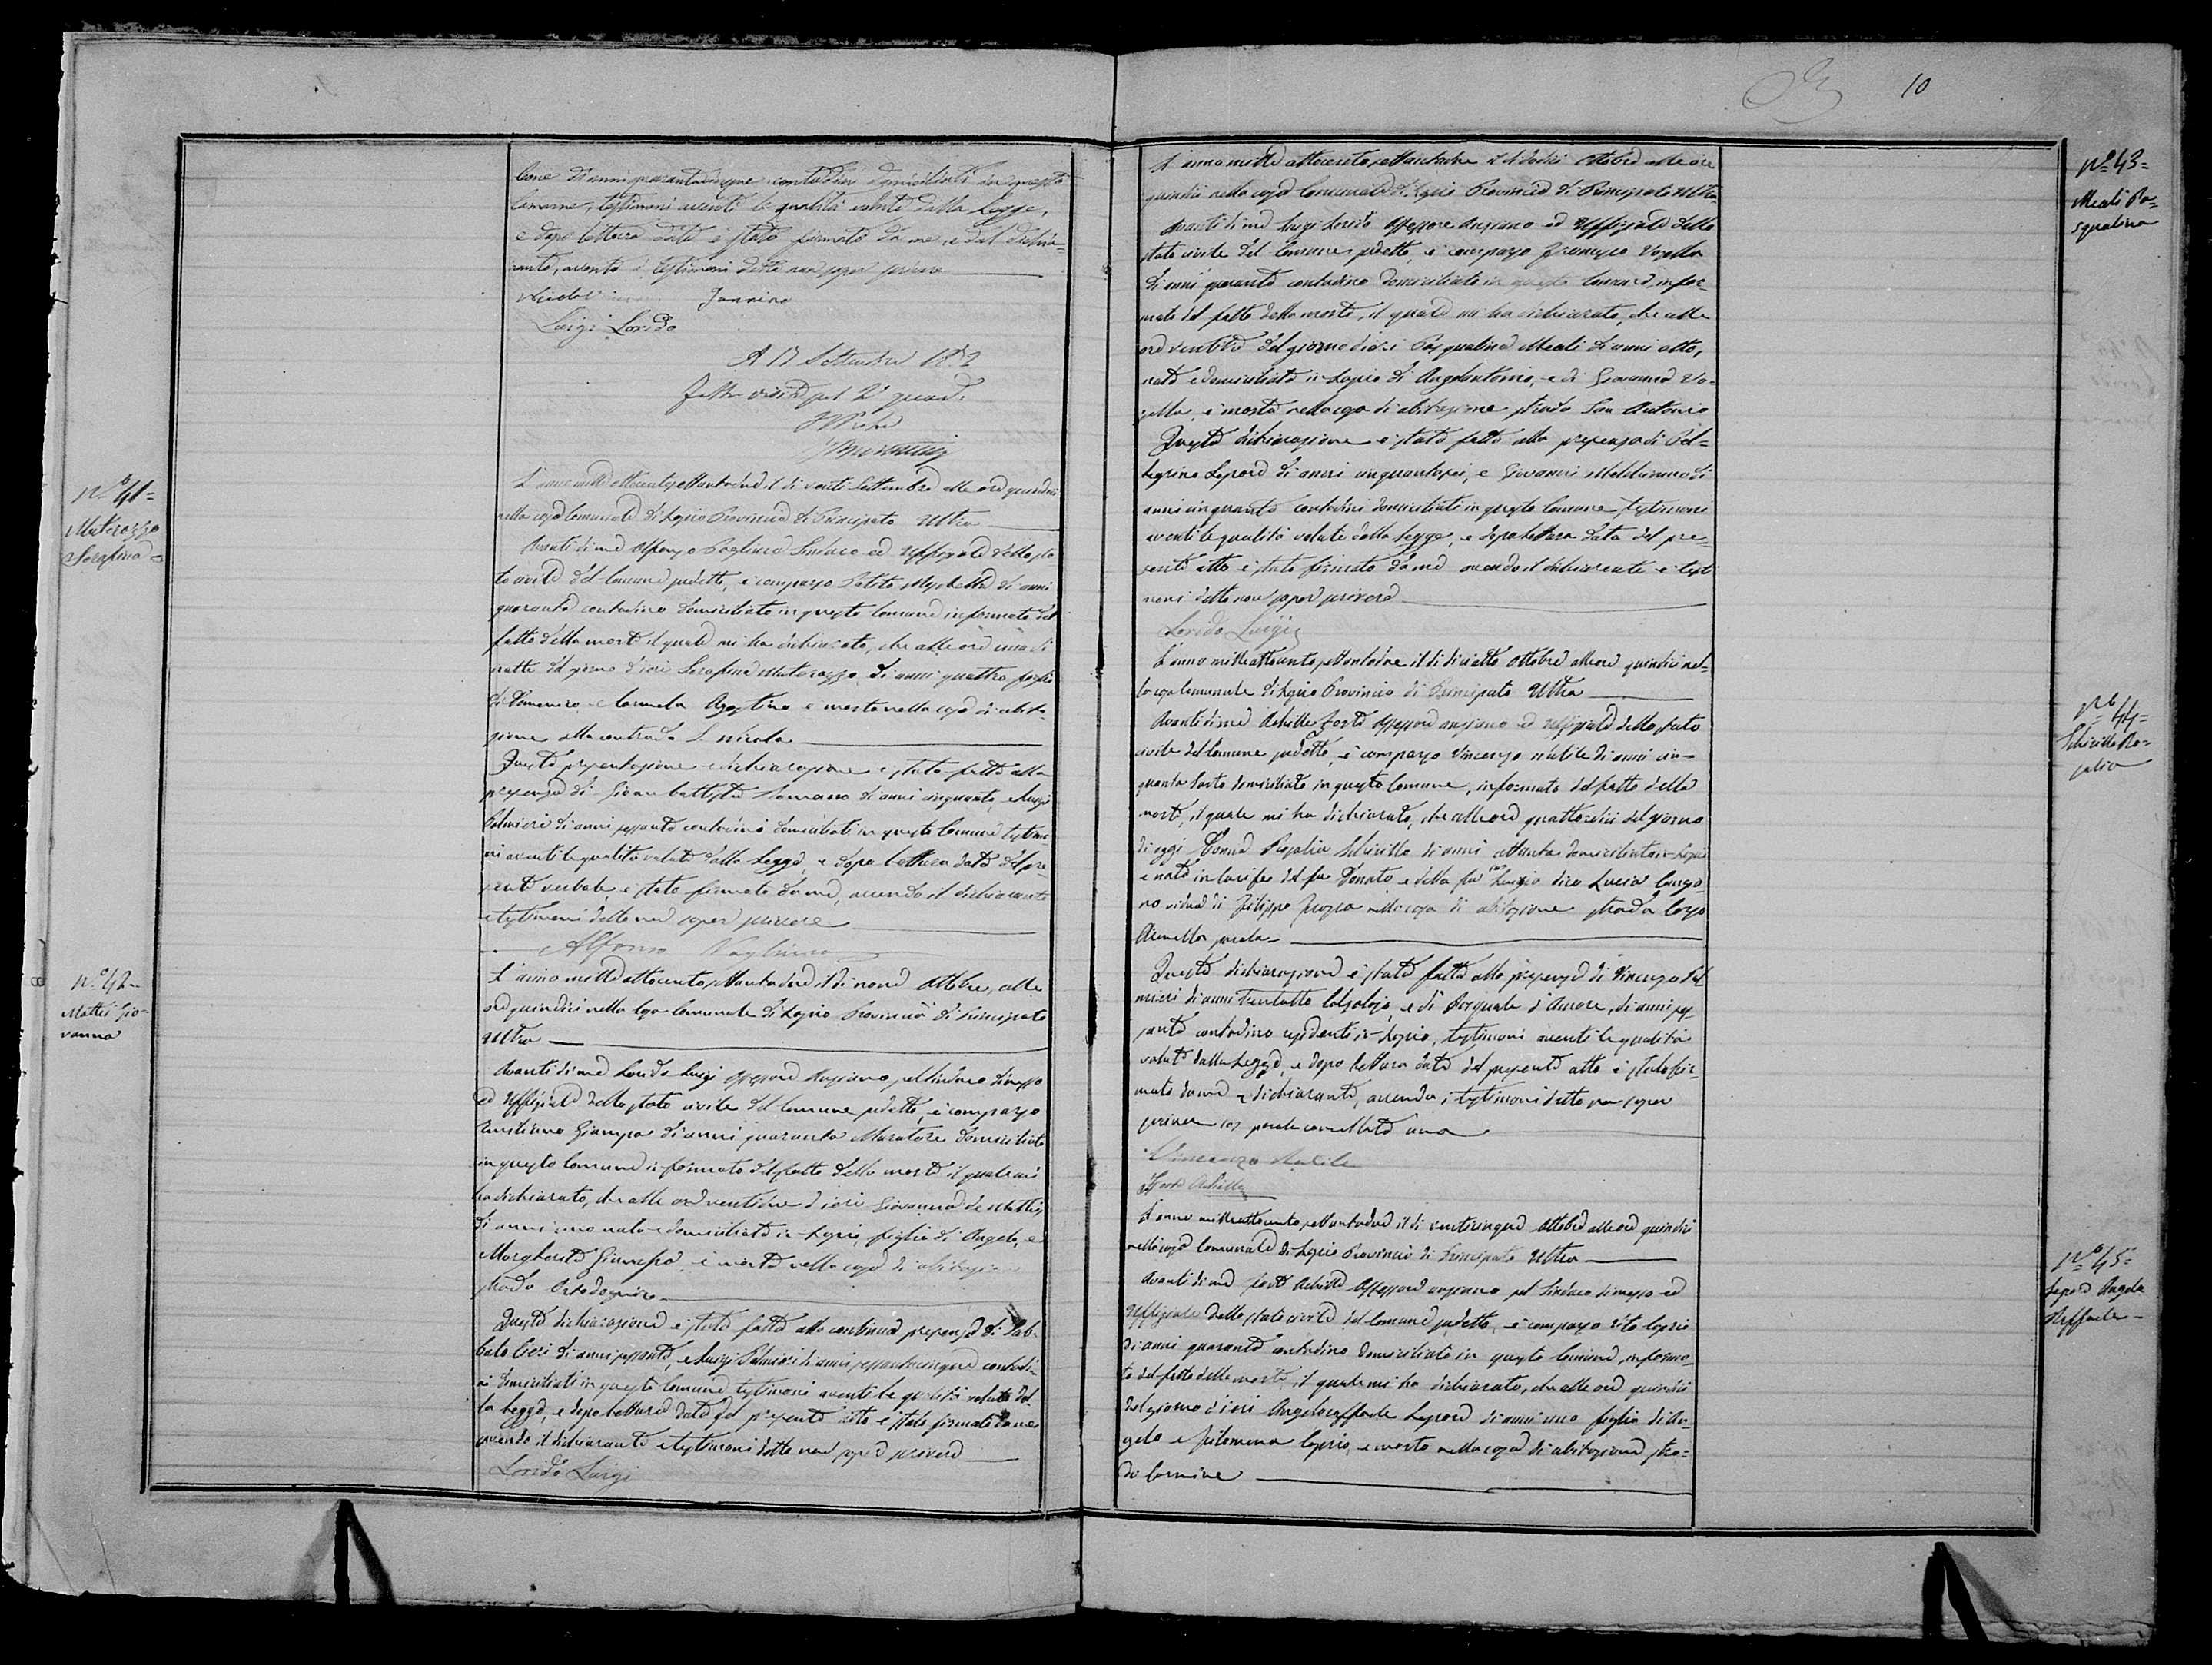 10
bone di anni quarantacinque contadini domiciliati in questo
Comune, testimoni aventi le qualità volute dalla Legge,
e dopo lettura data è stato firmato da me, e dal dichia-
rante, avendo i testimoni detto non saper scrivere
Iannino
Luigi Lorido
A 17 Settembre 1872
N.º 41=
Materazzo
Serafina
L'anno mille ottocento settantadue il dì venti Settembre alle ore quindici
nella casa Comunale di Lapio Provincia di Principato Ultra
Avanti di me Alfonso Sindaco ed Uffiziale dello sta-
to civile del Comune sudetto, è comparso di anni
quaranta contadino domiciliato in questo Comune informato del
fatto della morte il quale mi ha dichiarato, che alle ore una di
notte del giorno d'ieri Serafina Materazzo di anni quattro figlia
di Domenico e Carmela Agostino è morta nella casa di abita-
zione alla contrada S. Nicola
Questa presentazione e dichiarazione è stata fatta alla
presenza di Gioan battista Romano di anni cinquanta, e Luigi
Palmieri di anni sessanta contadini domiciliati in questo Comune testimo-
ni aventi le qualità volute dalla Legge, e dopo lettura data del pre-
sente verbale, è stato firmato da me, avendo il dichiarante
e testimoni detto non saper scrivere
Alfonso
N.º 42=
Mattis Gio-
vanna
L'anno mille ottocento settantadue il dì nove Ottobre, alle
ore quindici nella casa Comunale di Lapio Provincia di Principato
Ultra
Avanti di me Lorido Luigi Assessore Anziano pel Sindaco dimesso
ed Uffiziale dello stato civile del Comune sudetto, è comparso
Giampa di anni quaranta Muratore domiciliato
in questo Comune informato del fatto della morte il quale mi
ha dichiarato, che alle ore ventidue d'ieri Giovanna de Mattis
di anni uno nata e domiciliata in Lapio, figlia di Angelo, e
Margherita è morta nella casa di abitazione
strada
Questa dichiarazione è stata fatta alla continua presenza di Sab-
bato Cieri di anni sessanta, e Luigi Palmieri di anni sessantacinque contadi-
ni domiciliati in questo Comune testimoni aventi le qualità volute dal-
la Legge, e dopo lettura data del presente atto è stato firmato da me
avendo il dichiarante e testimoni detto non sapere scrivere
Lorido Luigi
N.º 43=
Meoli Pa=
squalina
L'anno mille ottocento settantadue il dì dodici Ottobre alle ore
quindici nella casa Comunale di Lapio Provincia di Principato Ultra
Avanti di me Luigi Lorido Assessore Anziano ed Uffiziale dello
stato civile del Comune sudetto, è comparso Francesco Vozella
di anni quaranta contadino domiciliato in questo Comune, infor-
mato del fatto della morte, il quale mi ha dichiarato, che alle
ore ventitre del giorno d'ieri Pasqualina Meoli di anni otto,
nata e domiciliata in Lapio di Angelantonio, e di Giovanna Vo-
zella, è morta nella casa di abitazione strada San Antonio
Questa dichiarazione è stata fatta alla presenza di Pel=
legrino Lepore di anni cinquantasei, e Giovanni di
anni cinquanta contadini domiciliati in questo Comune, testimoni
aventi le qualità volute dalla Legge, e dopo lettura data del pre-
sente atto è stato firmato da me avendo il dichiarante e testi
moni detto non saper scrivere
Lorido Luigi
N.º 44=
Schirillo Ro-
salia
L'anno mille ottocento settantadue il dì diciotto Ottobre alle ore quindici nel-
la casa Comunale di Lapio Provincia di Principato Ultra
Avanti di me Achille Forte Assessore anziano ed Uffiziale dello stato
civile del Comune sudetto, è comparso Vincenzo Nutile di anni cin-
quanta Sarto domiciliato in questo Comune, informato del fatto della
morte, il quale mi ha dichiarato, che alle ore quattordici del giorno
di oggi Donna Rosalia Schirillo di anni ottanta domiciliata in Lapio
e nata in del fu Donato, e della fu dico Lucia
vedova di Filippo nella casa di abitazione strada

Questa dichiarazione è stata fatta alla presenza di Vincenzo Pal
mieri di anni trentotto Calzolajo, e di Pasquale d'Amore, di anni ses-
santa contadino residenti in Lapio, testimoni aventi le qualità
volute dalla Legge, e dopo lettura data del presente atto è stato fir-
mato da me e dichiarante, avendo i testimoni detto non saper
scrivere
Vincenzo Nutile
Forte Achille
N.º 45=
Lepore Angela
Raffaela
L'anno mille ottocento settantadue il dì venticinque Ottobre alle ore quindici
nella casa Comunale di Lapio Provincia di Principato Ultra
Avanti di me Forte Achille Assessore anziano pel Sindaco dimesso ed
Uffiziale dello stato civile del Comune sudetto, è comparso Vito
di anni quaranta contadino domiciliato in questo Comune, informa-
to del fatto della morte, il quale mi ha dichiarato, che alle ore quindici
del giorno d'ieri Angelaraffaela Lepore di anni uno figlia di An-
gelo e Filomena è morta nella casa di abitazione stra-
da Carmine